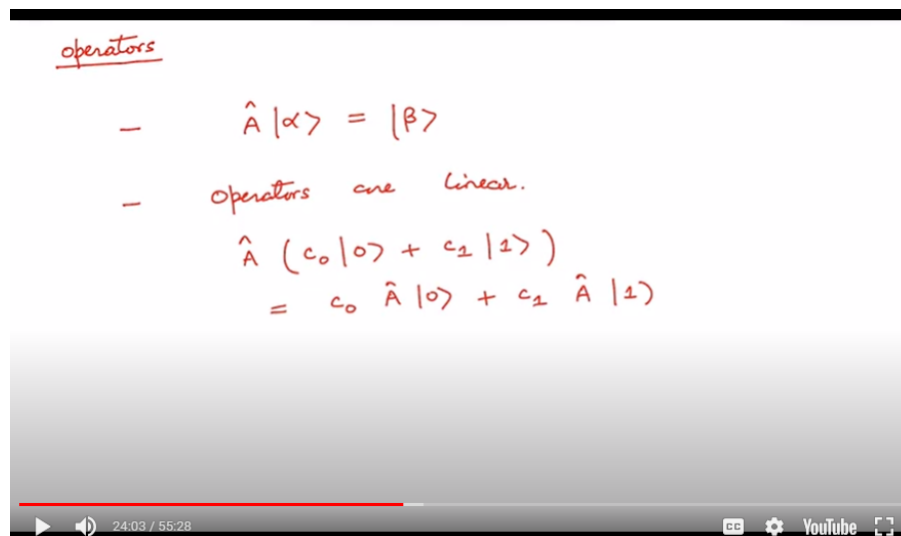 operators
– Â |α⟩ = |β⟩
– Operators are linear.
Â (c₀|0⟩ + c₁|1⟩)
= c₀ Â |0⟩ + c₁ Â |1⟩
24:03 / 55:28 CC YouTube